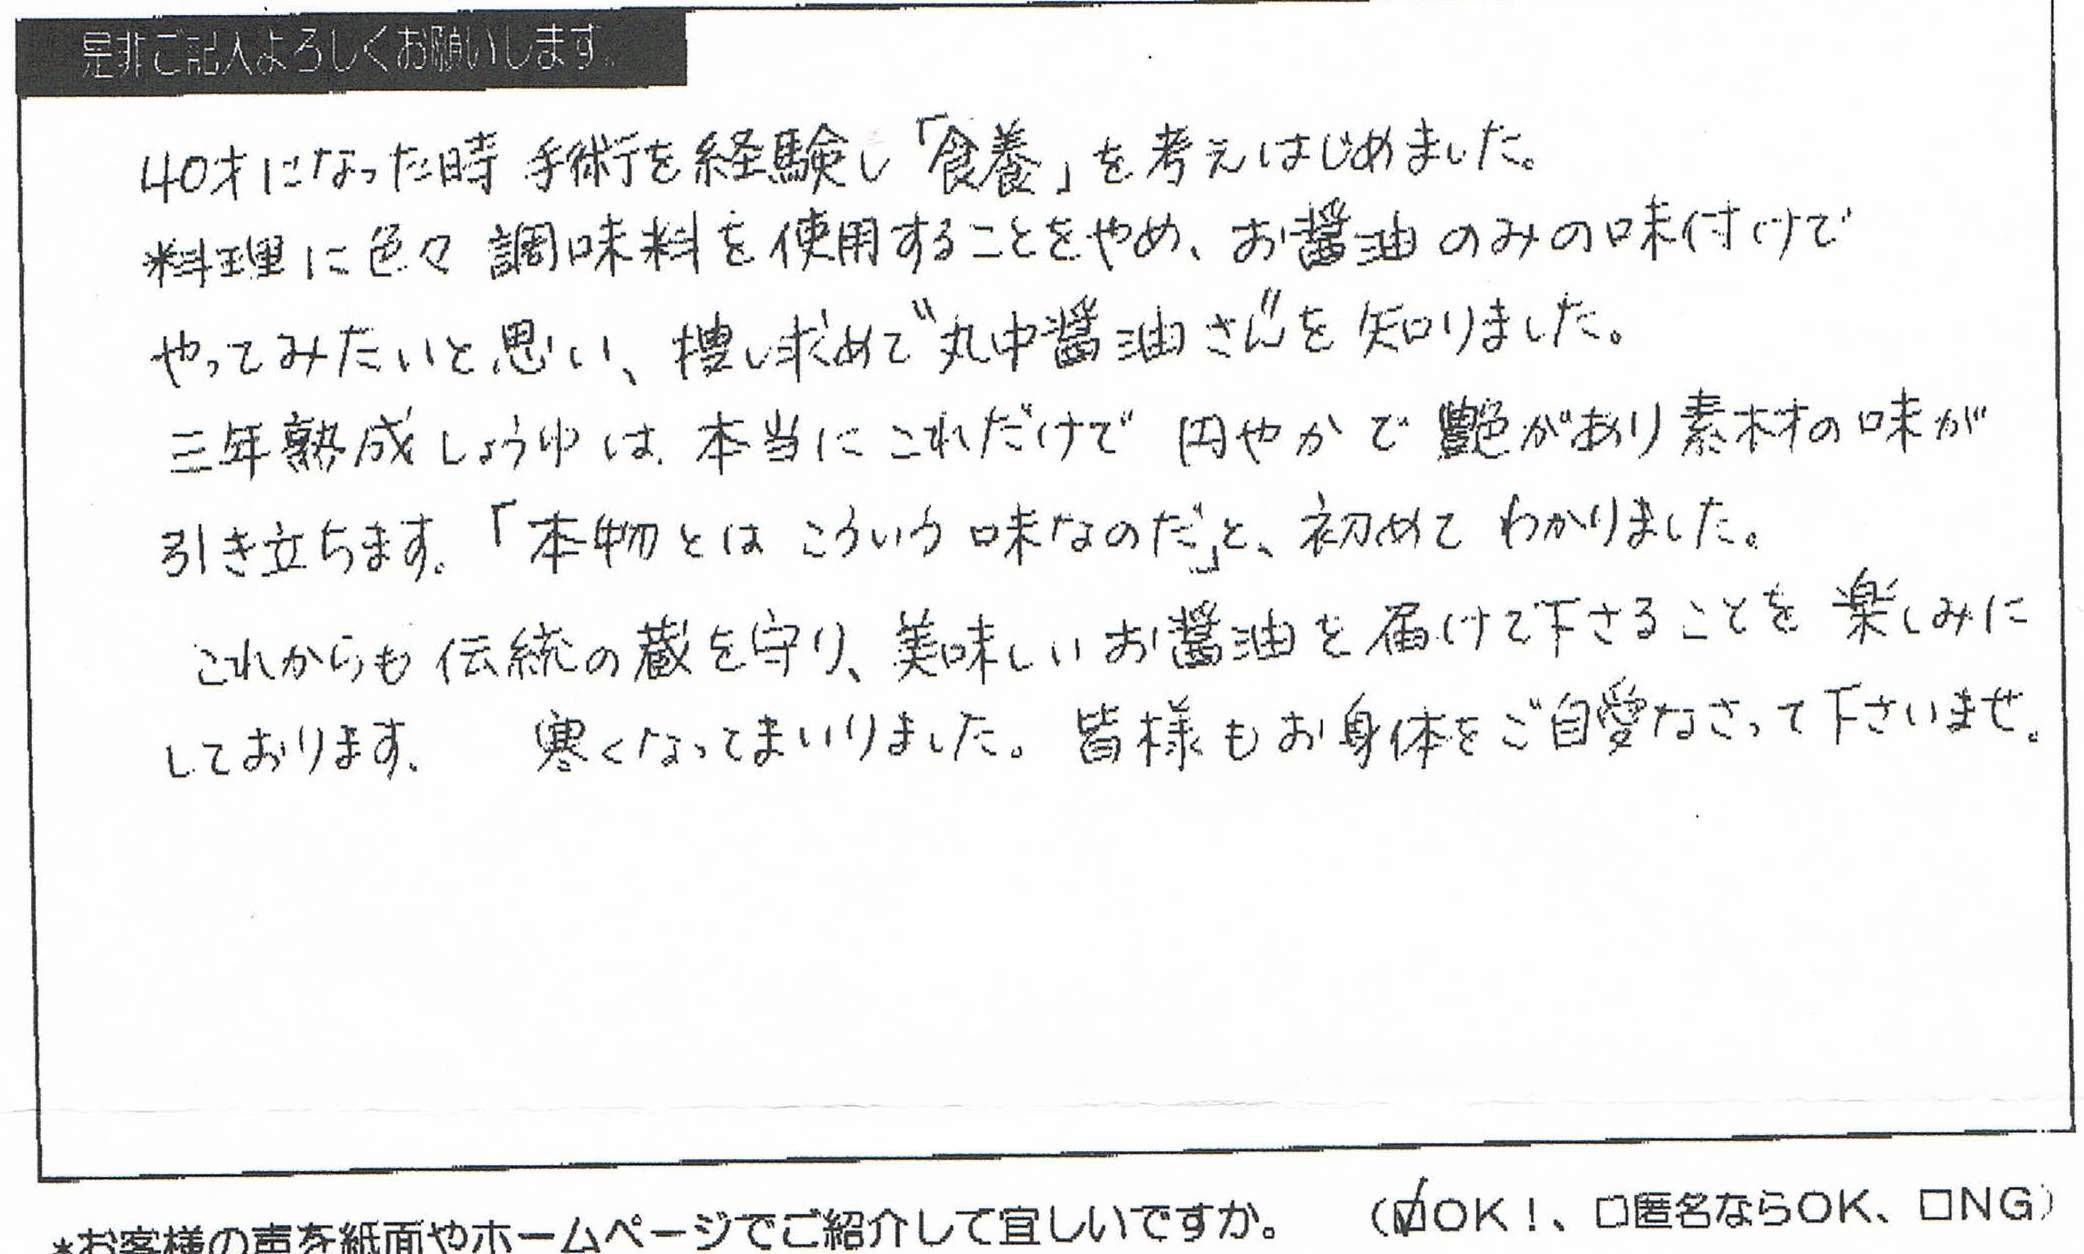 是非ご記入よろしくお願いします。
40才になった時 手術を経験し「食養」を考えはじめました。
料理に色々 調味料を使用することをやめ、お醤油のみの味付けで
やってみたいと思い、捜し求めて“丸中醤油さん”を知りました。
三年熟成しょうゆは 本当にこれだけで 円やかで 艶があり素材の味が
引き立ちます。「本物とは こういう味なのだ」と、初めて わかりました。
これからも伝統の蔵を守り、美味しいお醤油を届けて下さることを 楽しみに
しております。 寒くなってまいりました。皆様もお身体をご自愛なさって下さいませ。
*お客様の声を紙面やホームページでご紹介して宜しいですか。 (☑OK!、□匿名ならOK、□NG)